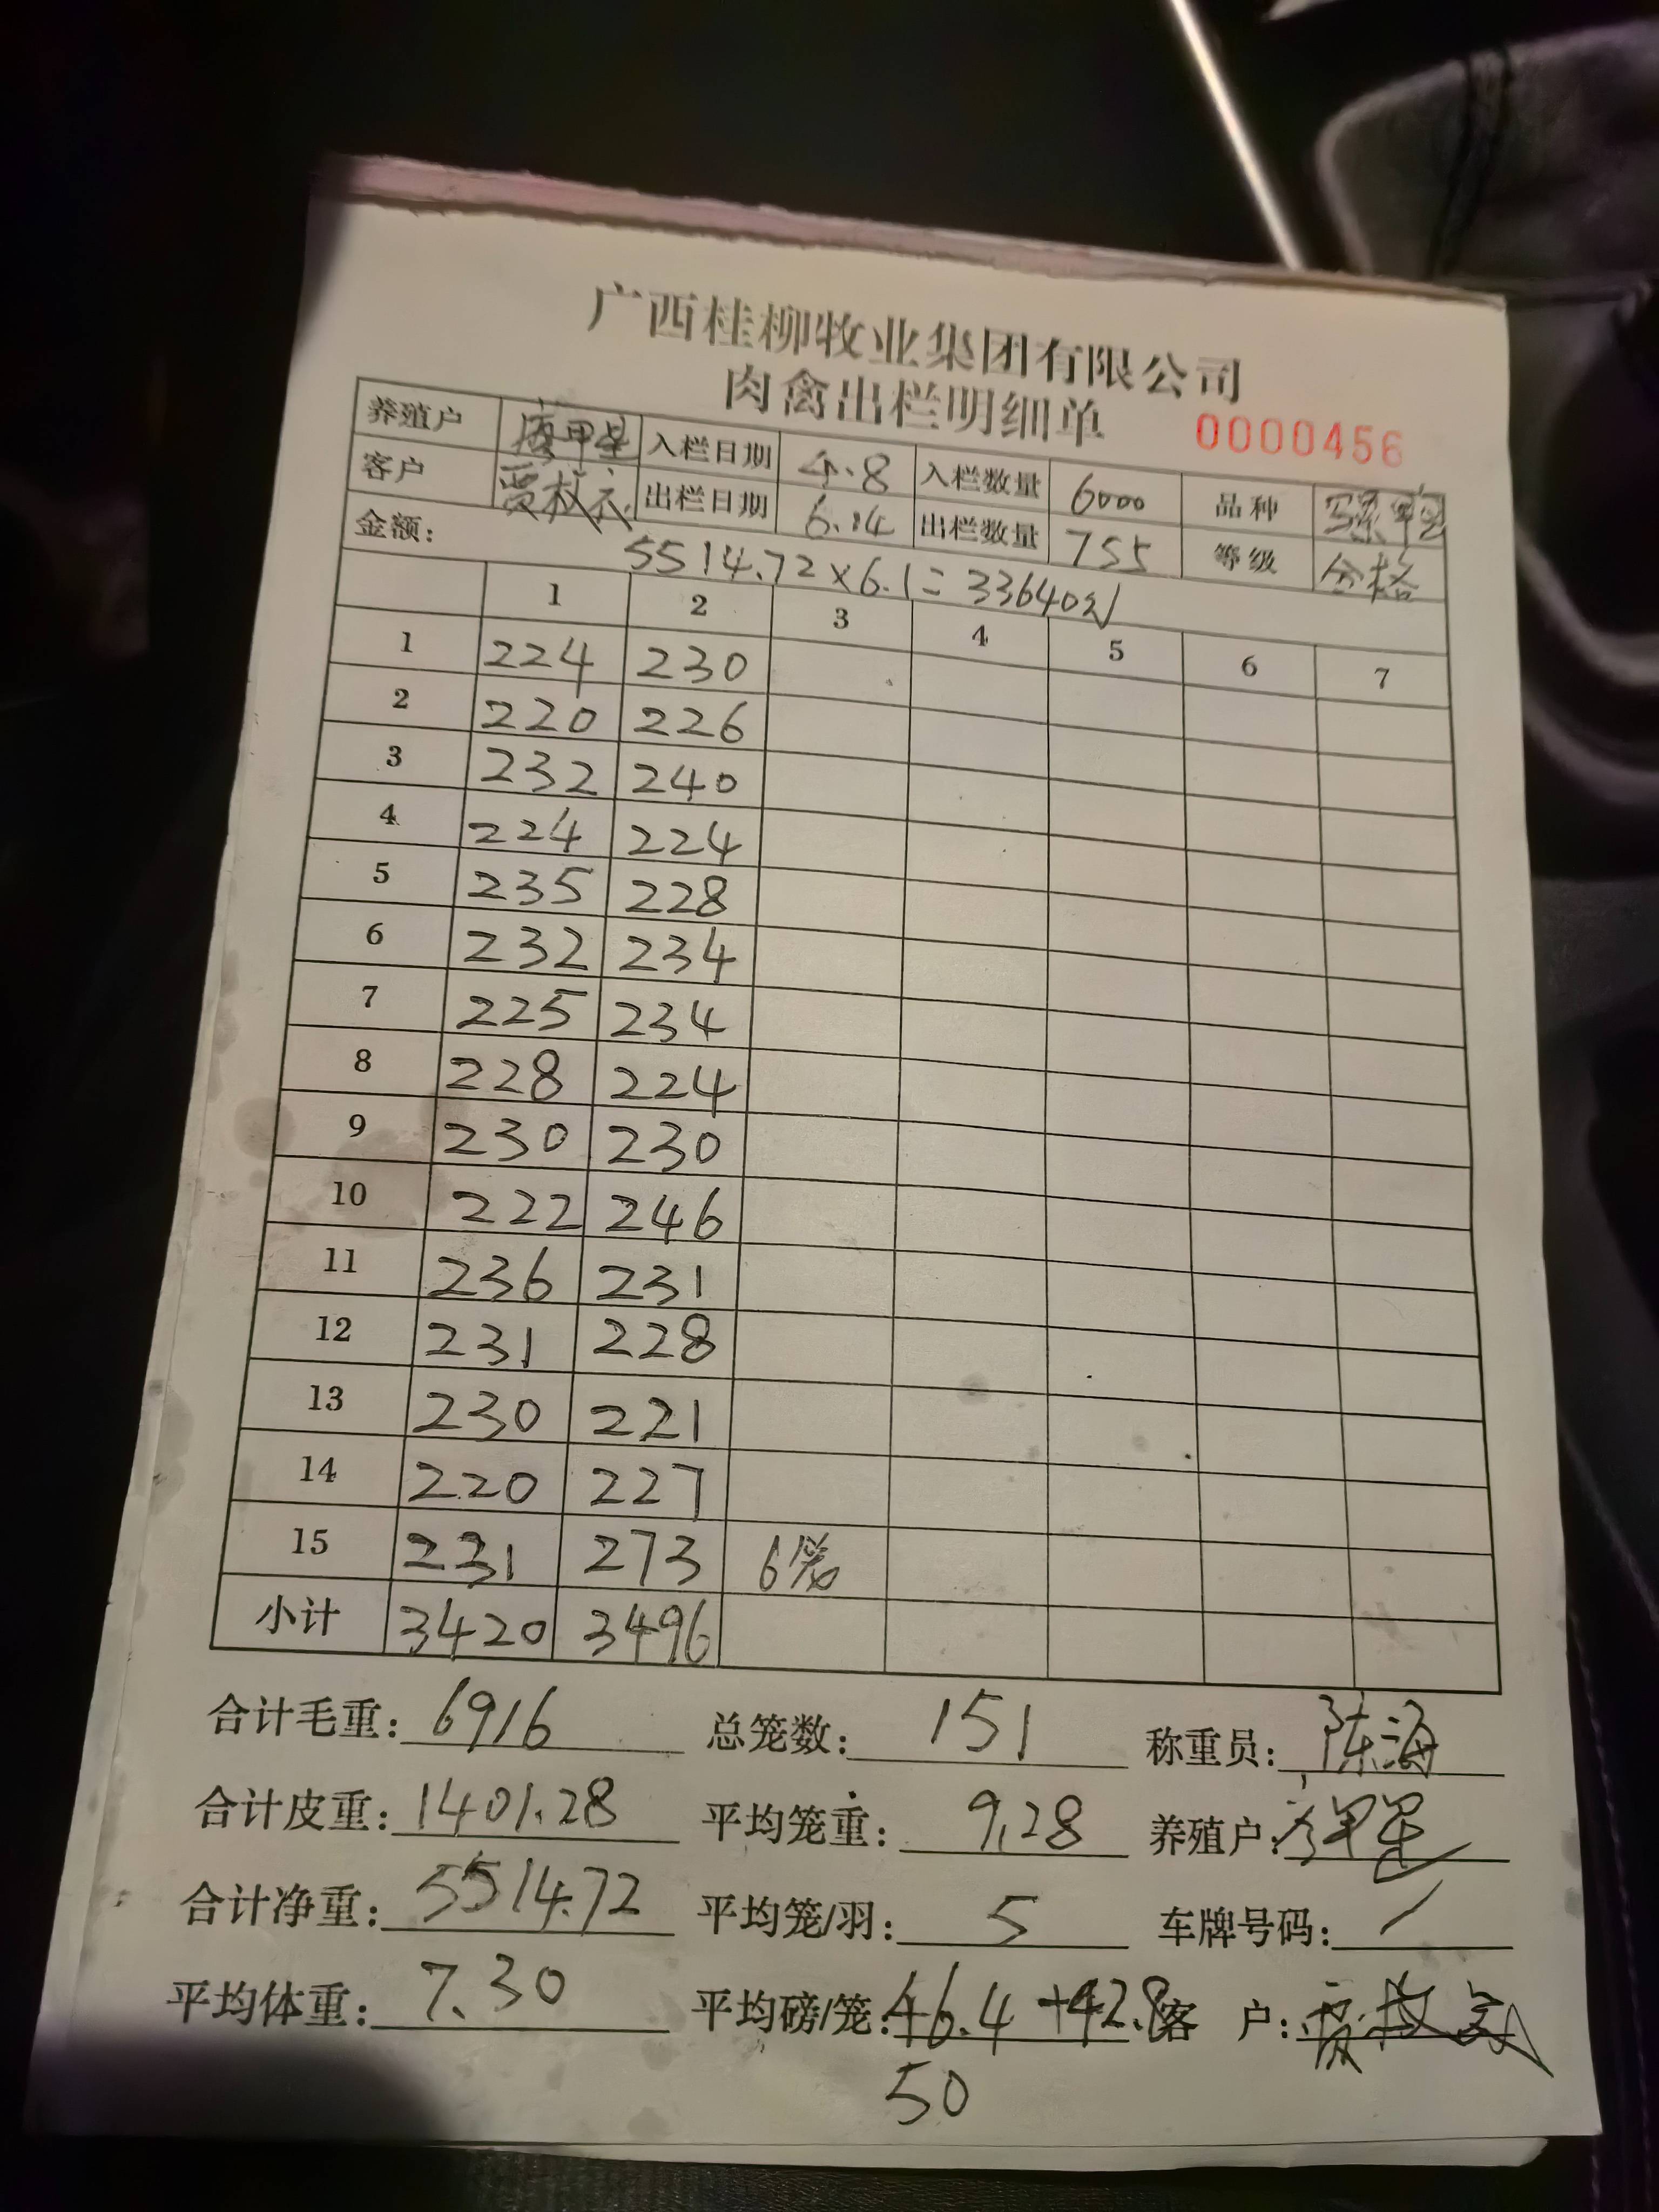 广西桂柳牧业集团有限公司
肉禽出栏明细单 0000456
养殖户 甲星 入栏日期 4.8 入栏数量 6000 品种
客户 贾 出栏日期 6.14 出栏数量 755 等级 合格
金额: 5514.72×6.1=33640元
1 2 3 4 5 6 7
1 224 230
2 220 226
3 232 240
4 224 224
5 235 228
6 232 234
7 225 234
8 228 224
9 230 230
10 222 246
11 236 231
12 231 228
13 230 221
14 220 227
15 231 273 6笼
小计 3420 3496
合计毛重: 6916 总笼数: 151 称重员: 陈海
合计皮重: 1401.28 平均笼重: 9.28 养殖户:
合计净重: 5514.72 平均笼/羽: 5 车牌号码: /
平均体重: 7.30 平均磅/笼: 46.4 +42.8 客 户: 贾
50